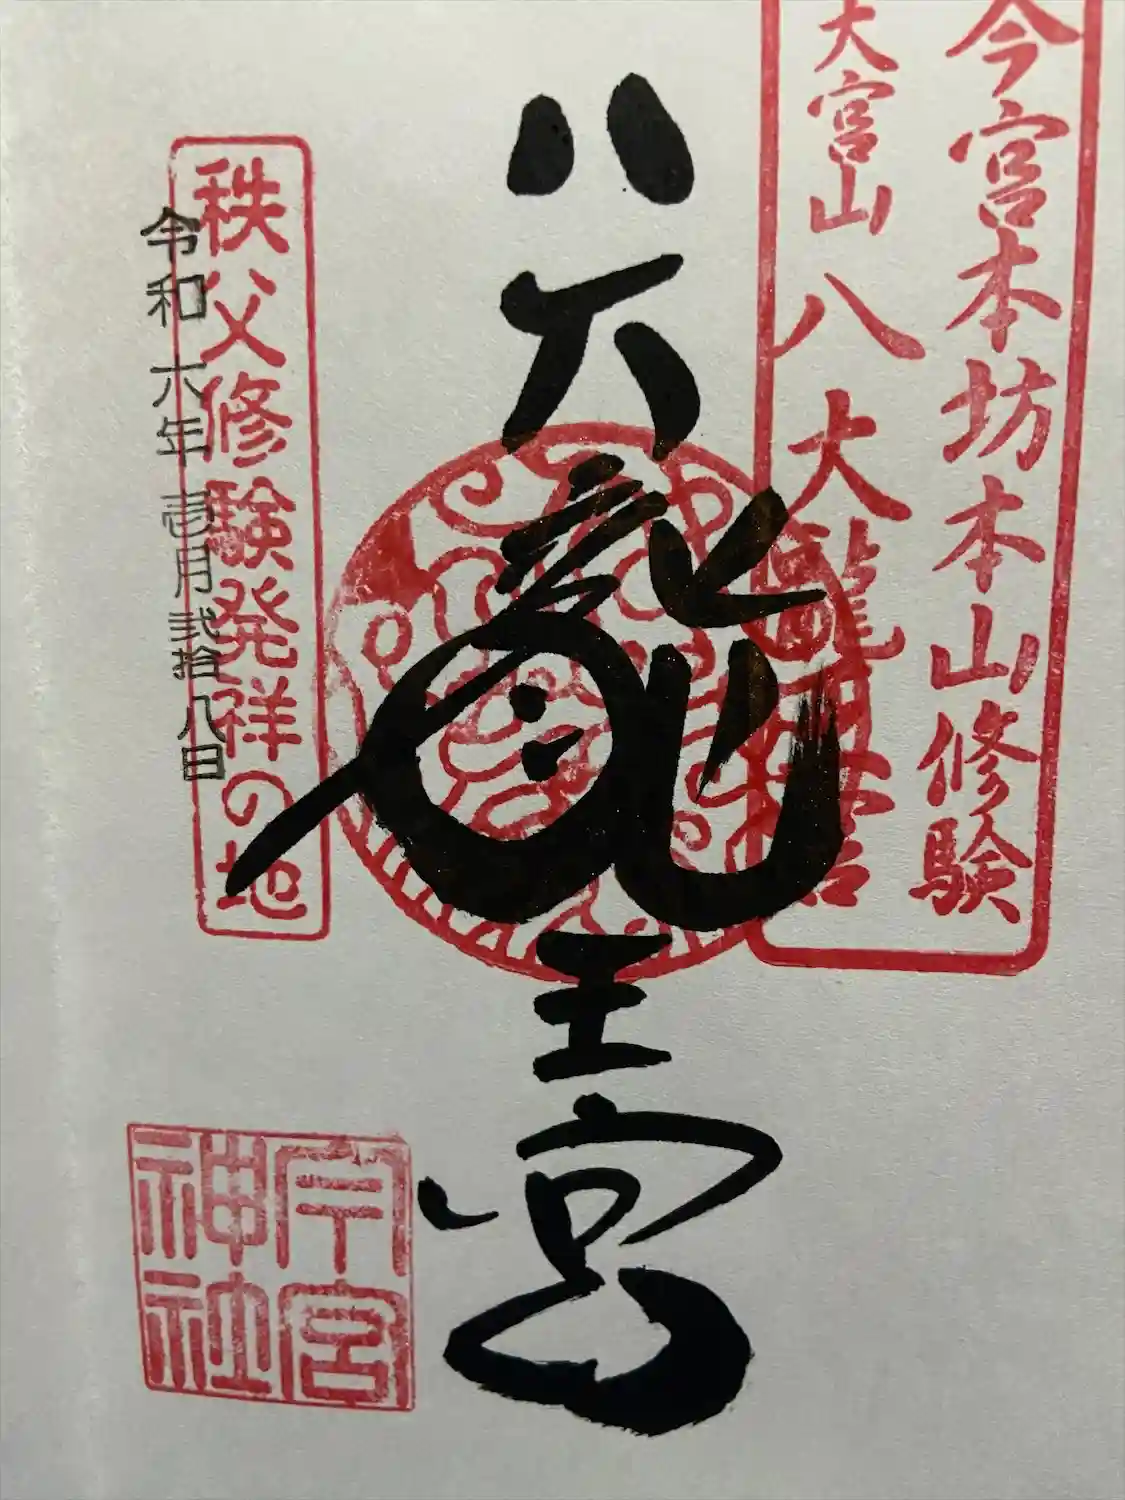 今宮本坊本山修験
大宮山八大龍王宮
八大龍王宮
秩父修験発祥の地
令和六年壱月弐拾八日
今宮
神社